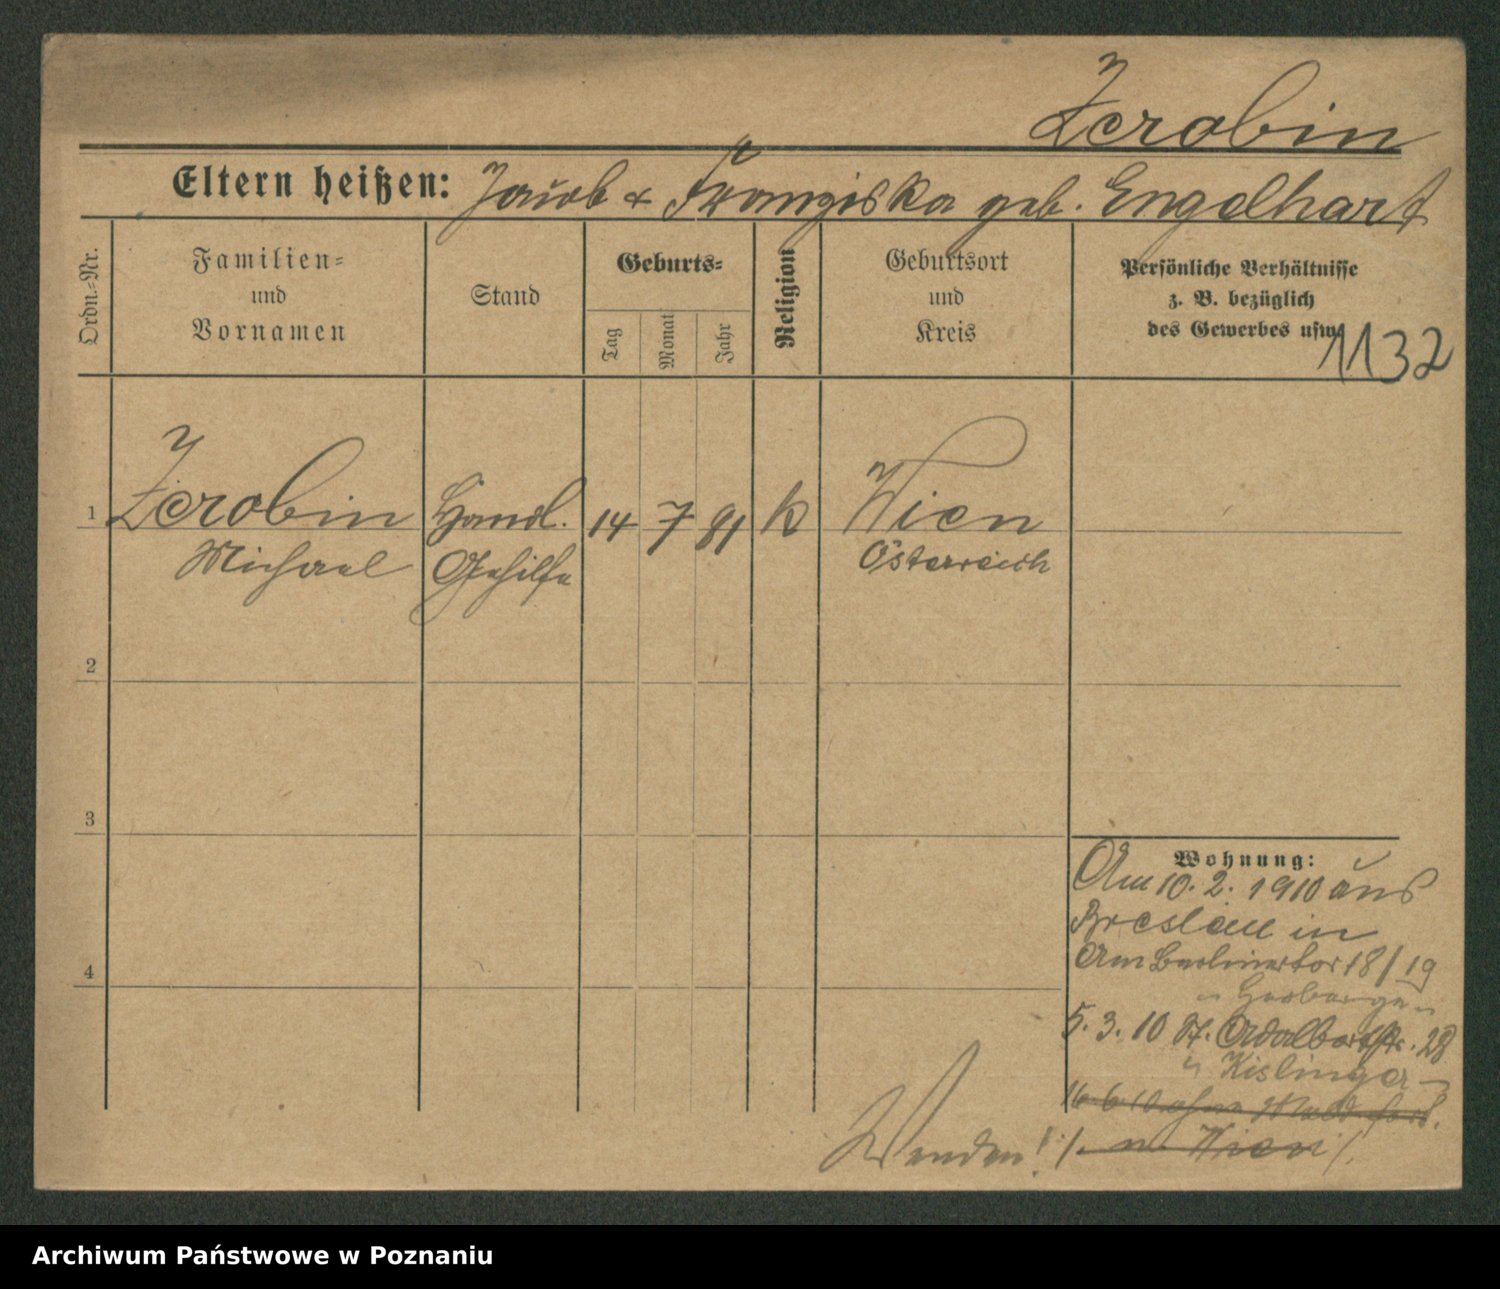 Zerobin
Eltern heißen: Jakob & Franziska geb. Engelhart
Ordn.-Nr.
Familien-
und
Vornamen
Stand
Geburts-
Tag
Monat
Jahr
Religion
Geburtsort
und
Kreis
Persönliche Verhältnisse
z. B. bezüglich
des Gewerbes usw.
1132
1 Zerobin Handl. 14 7 81 k Wien
Michael Gehilfe Österreich
2
3
4
Wohnung:
Am 10. 2. 1910 aus
Breslau in
Am Berlinertor 18/19
" Herberge "
5. 3. 10 St. Adalbertstr. 28
" Kislinger
16 6 10 ohne Meld fort.
/. n. Wien /.
Wenden!
Archiwum Państwowe w Poznaniu